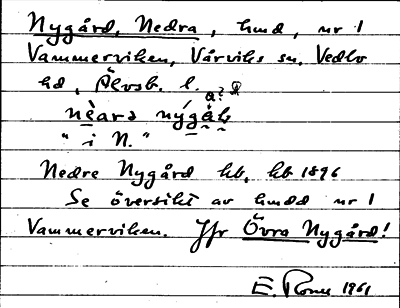 Nygård, Nedra, hmd, nr 1
Vammerviken, Vårviks sn, Vedbo
hd, Älvsb. l.
nèara nýgåh̥
" i N. "
Nedre Nygård hb. kb 1896
Se översikt av hmdd nr 1
Vammerviken. Jfr Övra Nygård!
E. Rome 1961